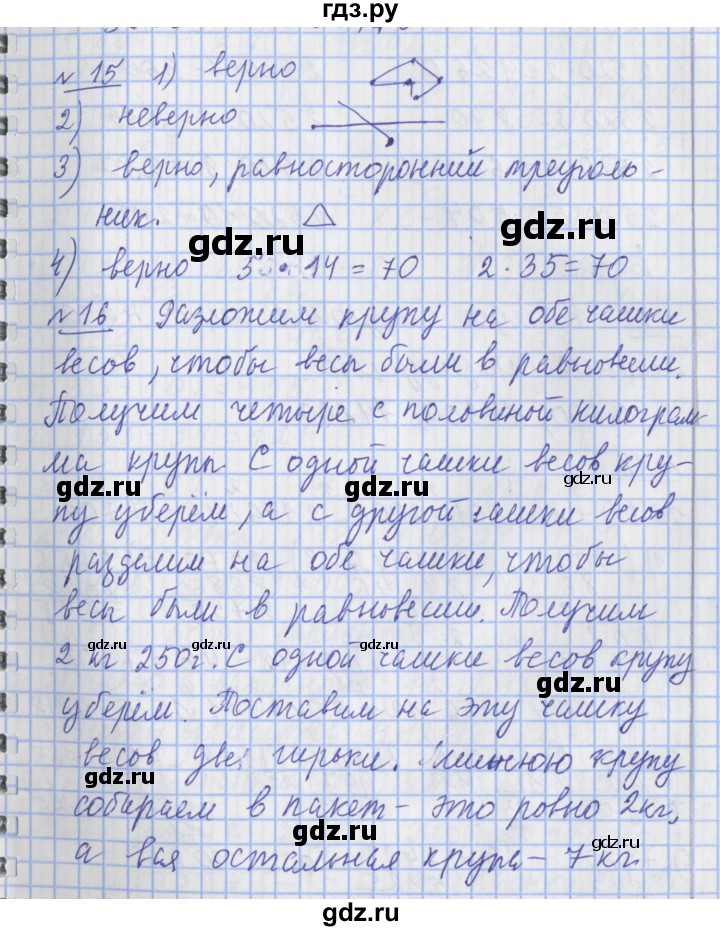 гдз.ру
№ 15 1) верно
2) неверно
3) верно, равносторонний треуголь-
ник.
gdz.ru gdz.ru
4) верно 5 · 14 = 70 2 · 35 = 70
№ 16 Разложим крупу на обе чашки
весов, чтобы весы были в равновесии.
Получим четыре с половиной килограм-
ма крупы С одной чашки весов кру-
gdz.ru gdz.ru gdz.ru
пу уберём, а с другой чашки весов
разделим на обе чашки, чтобы
весы были в равновесии. Получим
gdz.ru gdz.ru gdz.ru
2 кг 250г. С одной чашки весов крупу
gdz.ru
уберём. Поставим на эту чашку
весов две гирьки. Лишнюю крупу
gdz.ru
собираем в пакет – это ровно 2кг,
gdz.ru gdz.ru
а вся остальная крупа – 7 кг.
gdz.ru